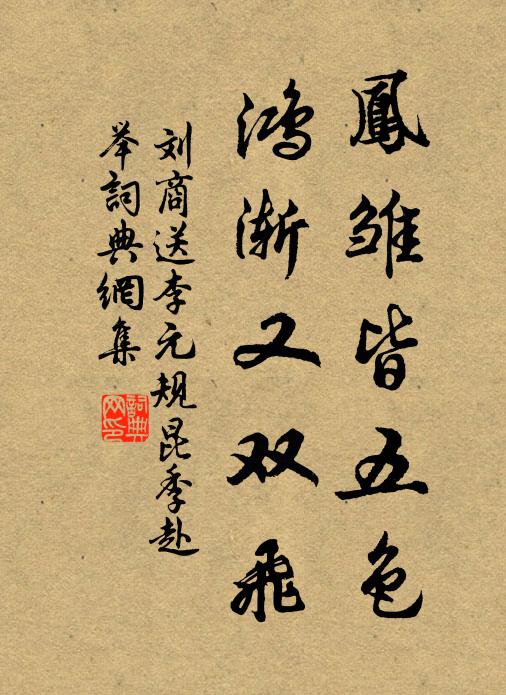 鳳雏皆五色
鸿渐又双飛
刘商送李元规昆季赴
举詞典網集
詞典
网印